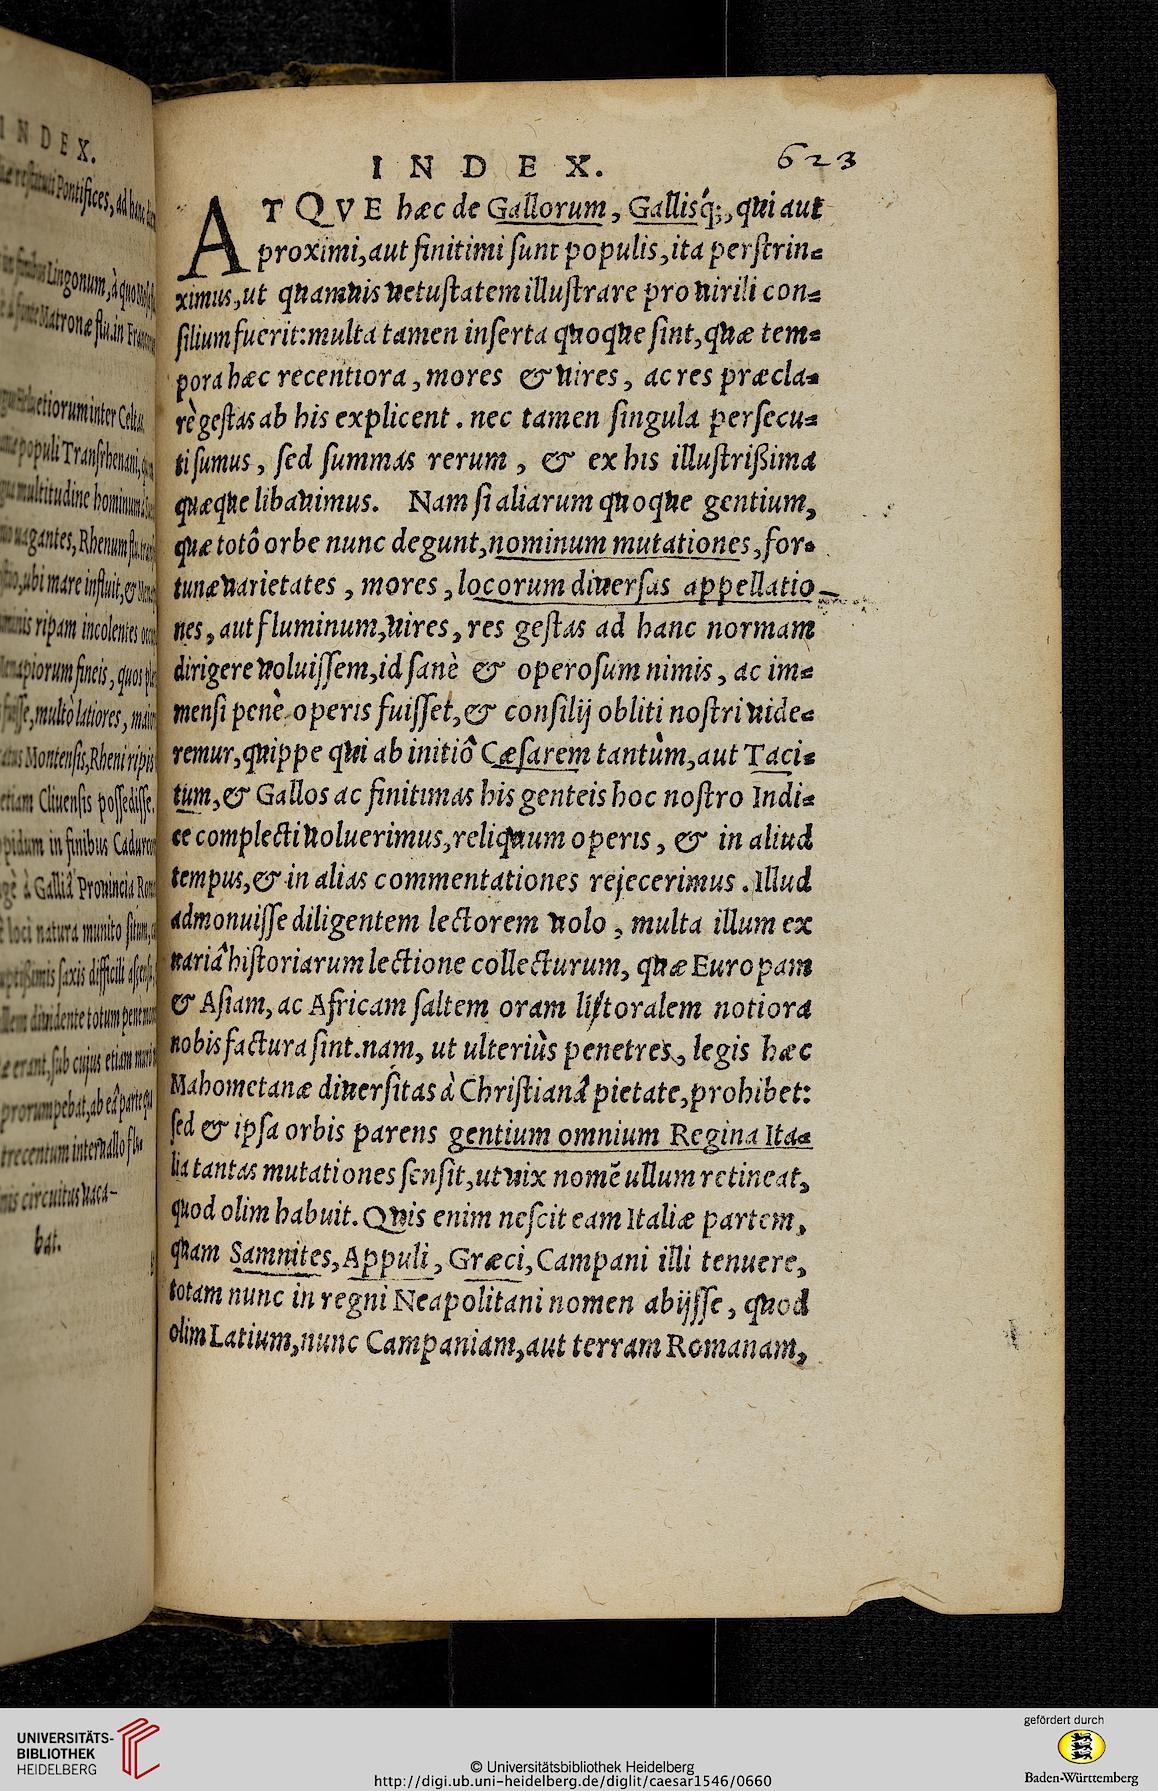 INDEX. 623
ATQVE hæc de Gallorum, Gallisq́;, qui aut
proximi, aut finitimi sunt populis, ita perstrin=
ximus, ut quamuis uetustatem illustrare pro uirili con=
silium fuerit: multa tamen inserta quoque sint, quæ tem=
pora hæc recentiora, mores & uires, ac res præcla=
rè gestas ab his explicent. nec tamen singula persecu=
ti sumus, sed summas rerum, & ex his illustrißima
quæque libauimus. Nam si aliarum quoque gentium,
quæ totô orbe nunc degunt, nominum mutationes, for=
tunæ uarietates, mores, locorum diuersas appellatio
nes, aut fluminum, uires, res gestas ad hanc normam
dirigere uoluissem, id sanè & operosum nimis, ac im=
mensi penè operis fuisset, & consilij obliti nostri uide=
remur, quippe qui ab initiô Cæsarem tantùm, aut Taci=
tum, & Gallos ac finitimas his genteis hoc nostro Indi=
ce complecti uoluerimus, reliquum operis, & in aliud
tempus, & in alias commentationes rejecerimus. Illud
admonuisse diligentem lectorem uolo, multa illum ex
uariâ historiarum lectione collecturum, quæ Europam
& Asiam, ac Africam saltem oram listoralem notiora
nobis factura sint. nam, ut ulteriùs penetres, legis hæc
Mahometanæ diuersitas à Christianâ pietate, prohibet:
sed & ipsa orbis parens gentium omnium Regina Ita=
lia tantas mutationes sensit, ut uix nomẽ ullum retineat,
quod olim habuit. Quis enim nescit eam Italiæ partem,
quam Samnites, Appuli, Græci, Campani illi tenuere,
totam nunc in regni Neapolitani nomen abijsse, quod
olim Latium, nunc Campaniam, aut terram Romanam,
INDEX.
Pontifices, ad hanc
Lingonum, à quo
Matronæ flu. in
inter Celtas
populi Transrhenani,
multitudine hominum
uagantes, Rhenum
ubi mare influit, &
ripam incolentes
fineis, quos
multò latiores,
Montensis, Rheni ripis
etiam Cliuensis possedisse,
in finibus
à Galliâ Prouincia
loci natura munito
saxis difficili
diuidente totum pene
erant. sub cujus etiam
prorumpebat, ab eâ parte
trecentum interuallo
circuitus uaca-
bat.
UNIVERSITÄTS-
BIBLIOTHEK
HEIDELBERG
© Universitätsbibliothek Heidelberg
http://digi.ub.uni-heidelberg.de/diglit/caesar1546/0660
gefördert durch
Baden-Württemberg